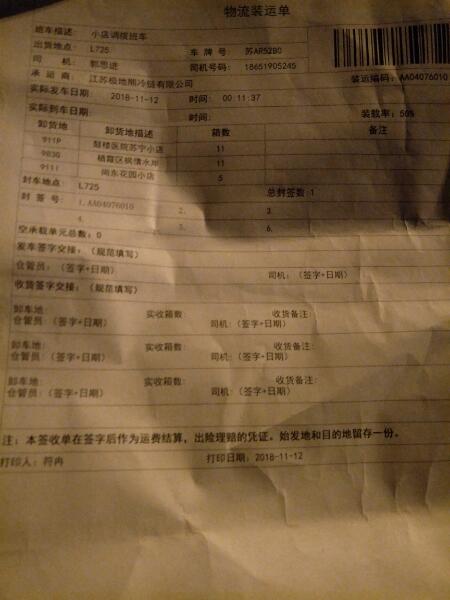 物流装运单
班车描述: 小店调拨班车
出货地点: L725 车 牌 号 苏AR52B0
司 机: 郭思进 司机号码: 18651905245
承 运 商: 江苏极地熊冷链有限公司 装运编码: AA04076010
实际发车日期: 2018-11-12 时间: 00:11:37
实际到车日期: 时间: 装载率: 50%
卸货地 卸货地描述 箱数 备注
911P 鼓楼医院苏宁小店 11
903G 栖霞区枫情水岸 11
9111 尚东花园小店 5
封车地点: L725 总封签数 1
封 签 号: 1.AA04076010 2. 3.
4. 5. 6.
空承载单元总数: 0
发车签字交接: (规范填写)
仓管员: (签字+日期) 司机: (签字+日期)
收货签字交接: (规范填写)
卸车地: 实收箱数: 收货备注:
仓管员: (签字+日期) 司机: (签字+日期)
卸车地: 实收箱数: 收货备注:
仓管员: (签字+日期) 司机: (签字+日期)
卸车地: 实收箱数: 收货备注:
仓管员: (签字+日期) 司机: (签字+日期)
注: 本签收单在签字后作为运费结算, 出险理赔的凭证。始发地和目的地留存一份。
打印人: 符冉 打印日期: 2018-11-12